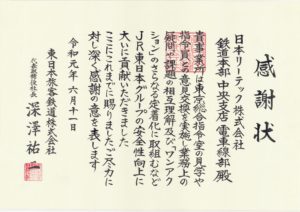 感謝状
日本リーテック株式会社
鉄道本部 中央支店 電車線部 殿
貴事業所は東京総合指令室の見学や
指令員との意見交換を実施し業務上の
疑問や課題の相互理解及び「ワンアク
ション」のさらなる定着化に取組むなど
JR東日本グループの安全性向上に
大いに貢献いただきました
ここにこれまでに賜りましたご尽力に
対し深く感謝の意を表します
令和元年六月十一日
東日本旅客鉄道株式会社
代表取締役社長 深澤祐二